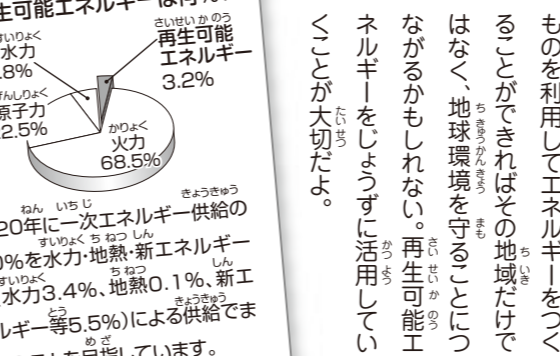 ものを利用してエネルギーをつく
ることができればその地域だけで
はなく、地球環境を守ることにつ
ながるかもしれない。再生可能エ
ネルギーをじょうずに活用してい
くことが大切だよ。
生可能エネルギーは何%
水力
.8%
再生可能
エネルギー
3.2%
原子力
2.5%
火力
68.5%
20年に一次エネルギー供給の
0%を水力・地熱・新エネルギー
水力3.4%、地熱0.1%、新エ
ルギー等5.5%)による供給でま
を目指しています。